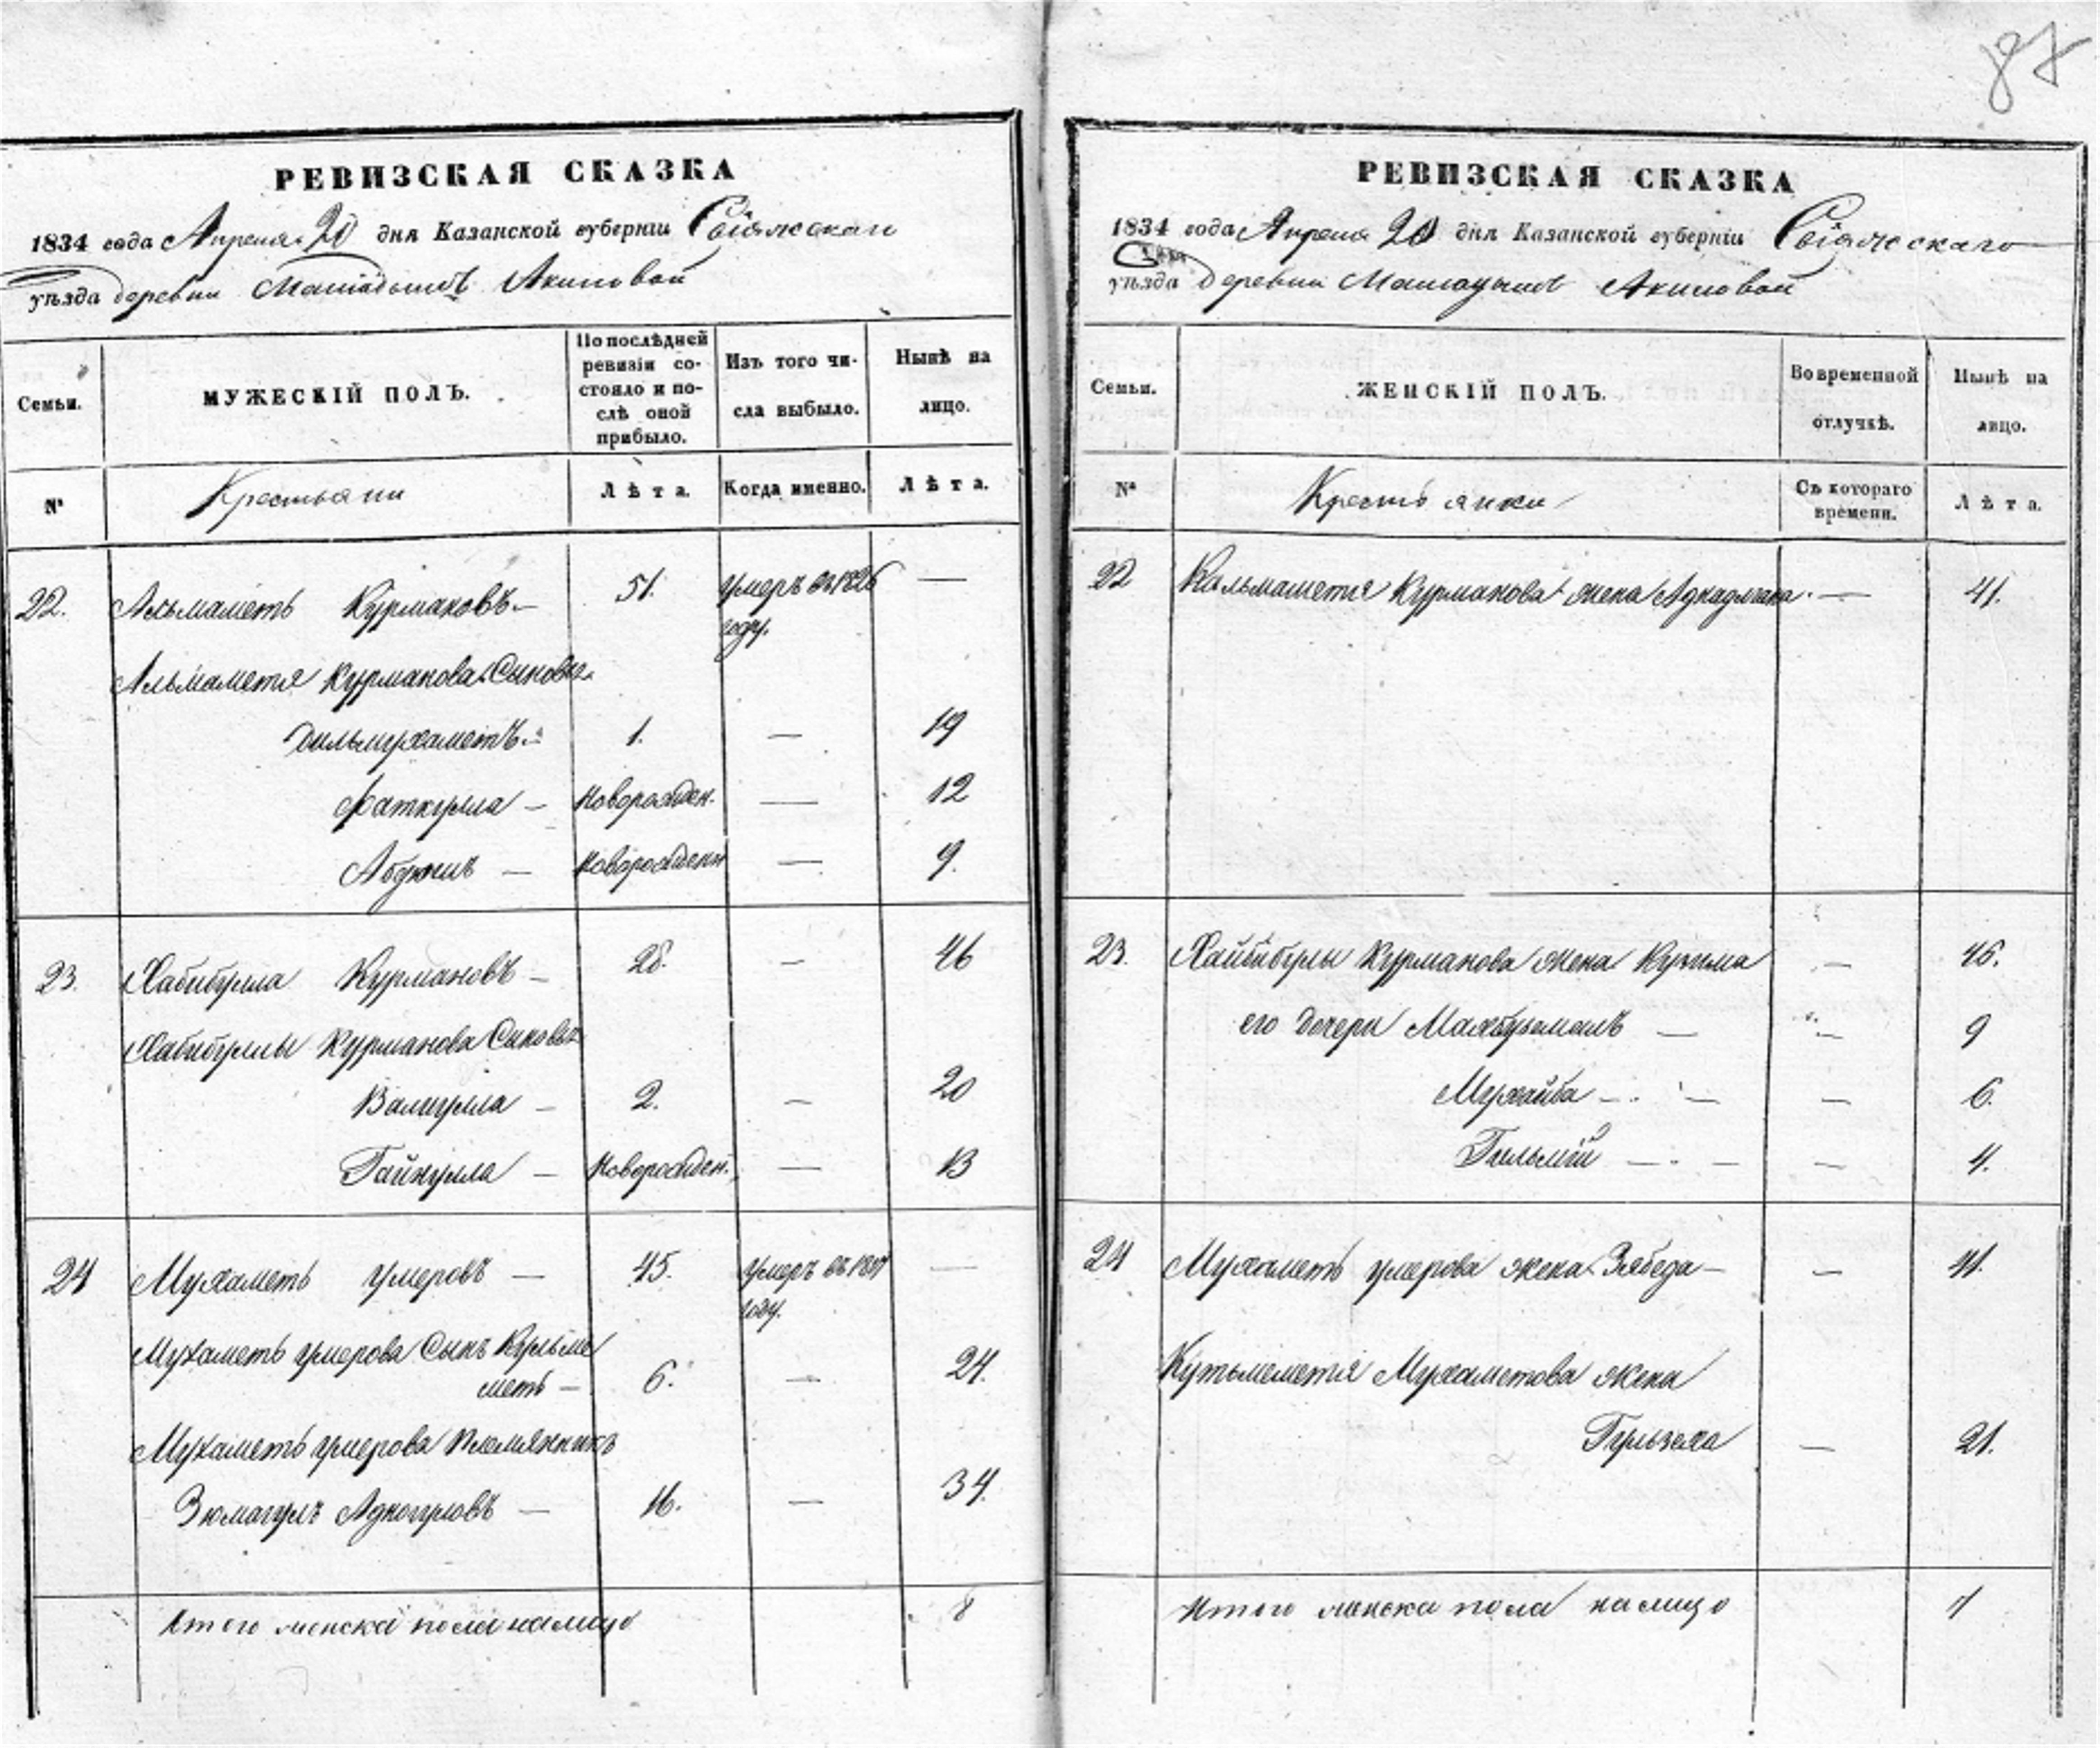 87
РЕВИЗСКАЯ СКАЗКА
1834 года Апреля 20 дня Казанской губерніи Свіяжскаго
уѣзда деревни Акиповой
Семьи.
МУЖЕСКІЙ ПОЛЪ.
По послѣдней ревизіи состояло и послѣ оной прибыло.
Изъ того числа выбыло.
Нынѣ на лицо.
№
Крестьяни
Лѣта.
Когда именно.
Лѣта.
22. Альмаметь Курмановъ — 51. умеръ въ 1826 году. —
Альмаметя Курманова Сыновья
Дильмухаметъ — 1. — 19
Фаткулла — Новорожден. — 12
— Новорожден — 9.
23. Хабибулла Курмановъ — 28. — 46
Хабибуллы Курманова Сыновья
Валиулла — 2. — 20
Гайнулла — Новорожден. — 13
24 Мухаметь Умеровъ — 45. Умеръ въ году. —
Мухаметь Умерова Сынъ
меть — 6. — 24.
Мухаметь Умерова племянникъ
Зюмагулъ — 16. — 34.
Итого мужска пола налицо 8
РЕВИЗСКАЯ СКАЗКА
1834 года Апреля 20 дня Казанской губерніи Свіяжскаго
уѣзда деревни Акиповой
Семьи.
ЖЕНСКІЙ ПОЛЪ.
Во временной отлучкѣ.
Нынѣ на лицо.
№
Крестьянки
Съ котораго времени.
Лѣта.
22 Курманова жена — 41.
23. Хайбибулы Курманова жена — 46.
его дочери — — 9
Мухайба — — 6.
— — 4.
24 Мухаметь Умерова жена Зябеда — — 41.
Кутьмеметя Мухаметова жена
Гульзеха — 21.
Итого женска пола налицо